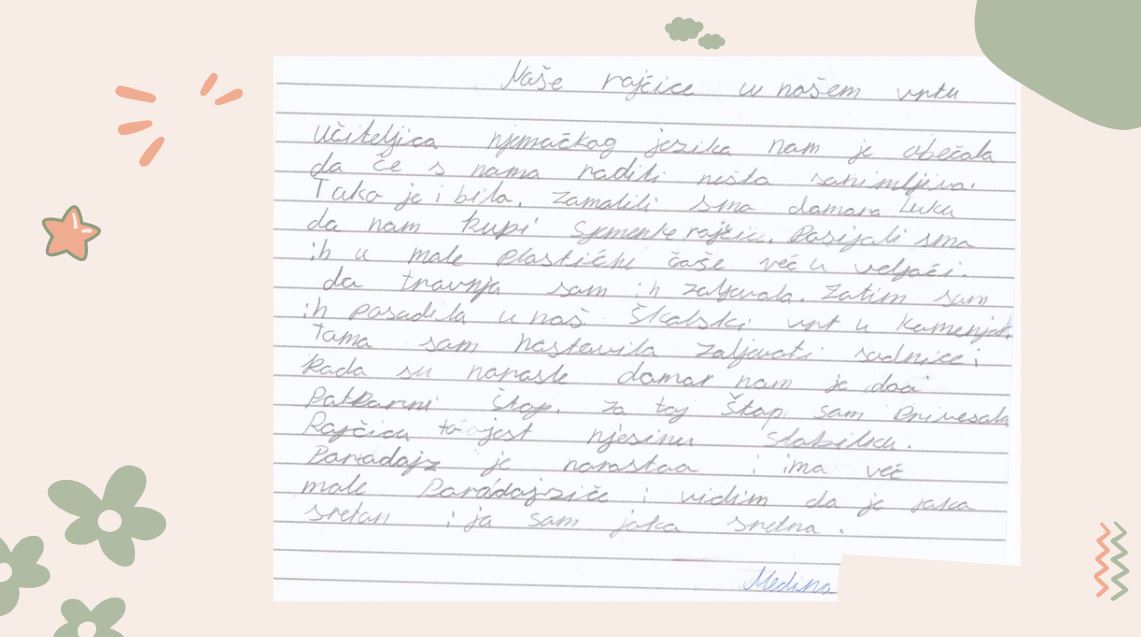 Naše rajčice u našem vrtu
Učiteljica njemačkog jezika nam je obečala
da če s nama raditi nešta zanimljiva.
Tako je i bila. Zamolili smo domara Luku
da nam kupi sjemenke rajčic. Posijali smo
ih u male plastićne čaše već u veljači.
da travnja sam ih zaljevala. Zatim sam
ih posadila u naš školski vrt u kamenjak.
tama sam nastavila zaljevati sadnice i
kada su narasle domar nam je dao
potkarni štap. za taj štap sam privesala
Rajčicu to jest njesinu stabilku.
Paradajz je narastao i ima već
male Paradajziče i vidim da je jaka
sretan i ja sam jaka sretna.
Medina